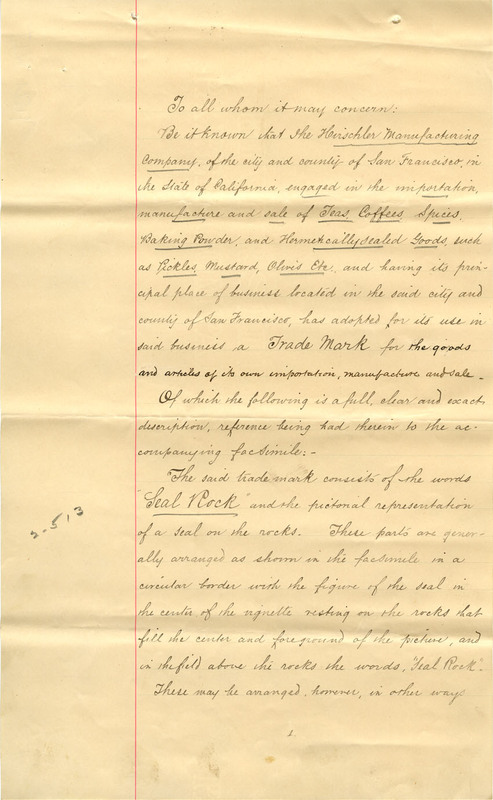 To all whom it may concern:
Be it known that the Herschler Manufacturing
Company, of the city and county of San Francisco, in
the State of California, engaged in the importation,
manufacture and sale of Teas, Coffees, Spices,
Baking Powder, and Hermetically sealed Goods, such
as Pickles, Mustard, Olives Etc, and having its prin-
cipal place of business located in the said city and
county of San Francisco, has adopted for its use in
said business a Trade Mark for the goods
and articles of its own importation, manufacture and sale.
Of which the following is a full, clear and exact
description, reference being had therein to the ac-
companying facSimile:-
The said trade mark consists of the words
"Seal Rock" and the pictorial representation
of a seal on the rocks. These parts are gener-
ally arranged as shown in the facSimile in a
circular border with the figure of the seal in
the center of the vignette resting on the rocks that
fill the center and foreground of the picture, and
in the field above the rocks the words, "Seal Rock".
These may be arranged, however, in other ways
1.
2513